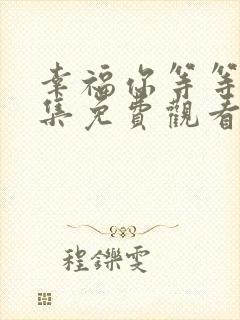 幸福你等等
集免費觀看
程鑠雯